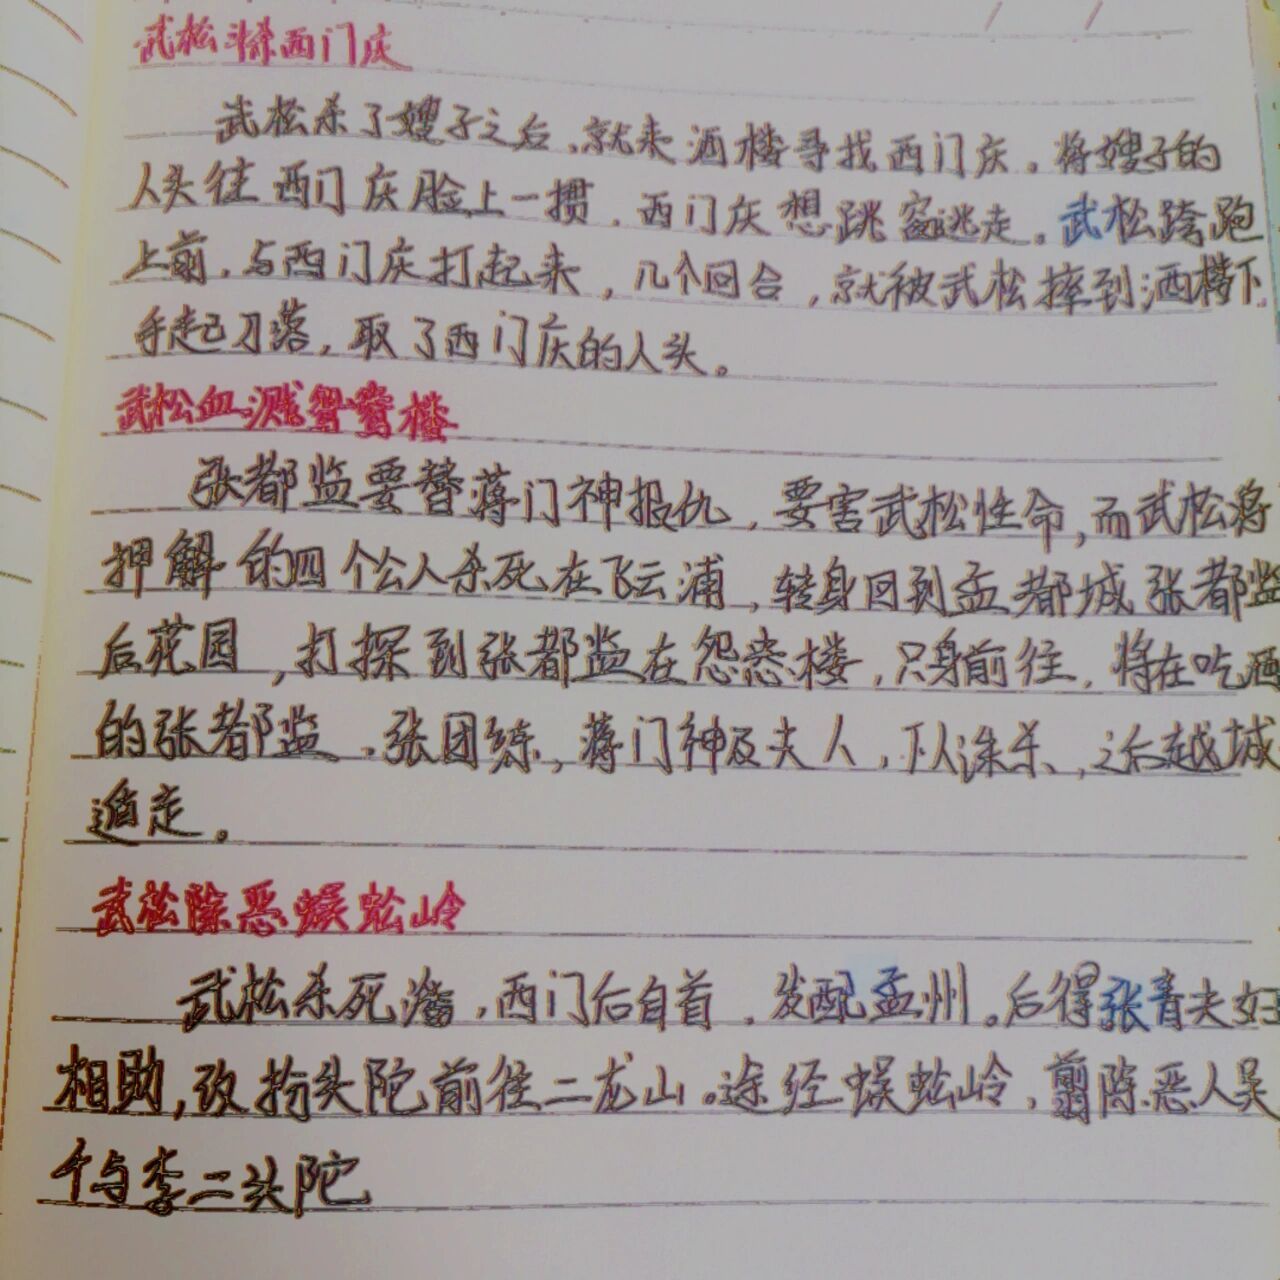 武松杀西门庆
武松杀了嫂子之后,就来酒楼寻找西门庆。将嫂子的
人头往西门庆脸上一掼,西门庆想跳窗逃走。武松跨跑
上前,与西门庆打起来,几个回合,就被武松摔到酒楼下,
手起刀落,取了西门庆的人头。
武松血溅鸳鸯楼
张都监要替蒋门神报仇,要害武松性命,而武松将
押解的四个公人杀死在飞云浦,转身回到孟都城张都监
后花园,打探到张都监在怨恙楼,只身前往,将在吃酒
的张都监、张团练,蒋门神及夫人,下人诛杀,之后越城
遁走。
武松除恶蜈蚣岭
武松杀死潘,西门后自首,发配孟州。后得张青夫妇
相助,改扮头陀前往二龙山。途经蜈蚣岭,翦除恶人吴
千与李二头陀